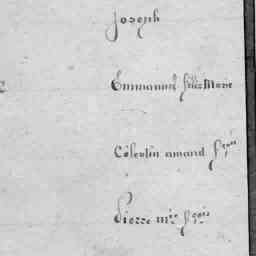 Joseph
Emmanuel félix Marie
Célestin amand fçois
Pierre mie fçois